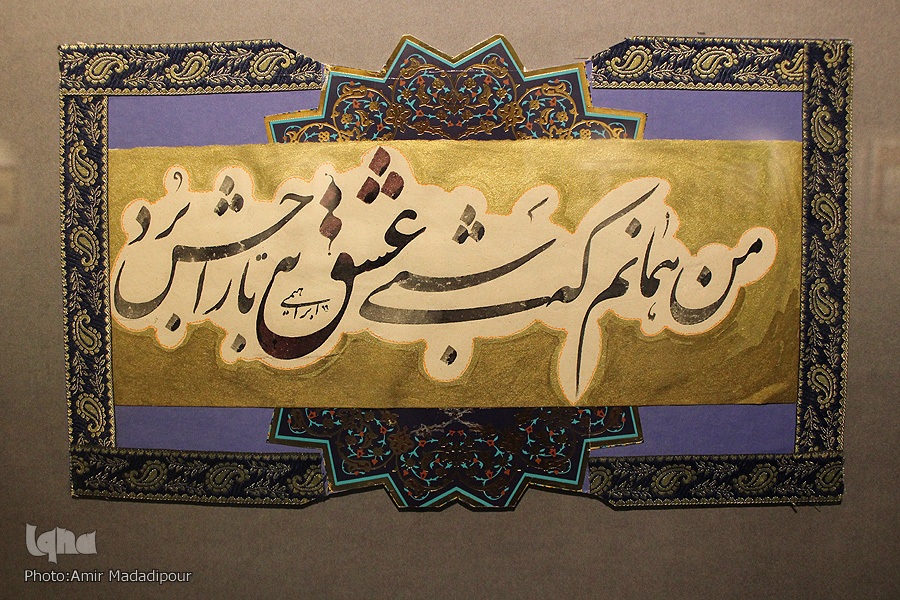 من همانم که شبی عشق به تاراجش برد
ابراهیمی ۹۹
Iqna
Photo:Amir Madadipour